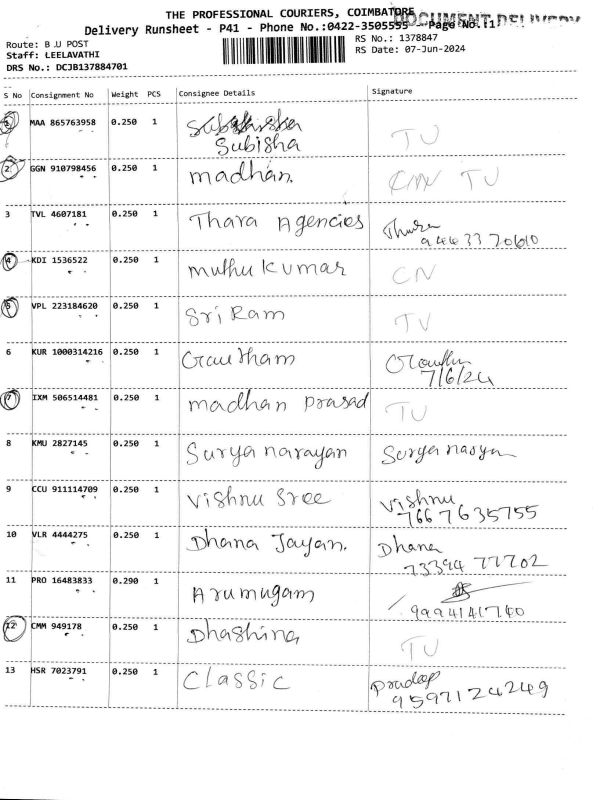 THE PROFESSIONAL COURIERS, COIMBATORE
DOCUMENT DELIVERY
Delivery Runsheet - P41 - Phone No.:0422-3505555 Page No.:1
Route: B JJ POST
RS No.: 1378847
Staff: LEELAVATHI
RS Date: 07-Jun-2024
DRS No.: DCJB137884701
S No Consignment No Weight PCS Consignee Details Signature
1 MAA 865763958 0.250 1 Subisha TV
Subisha
2 GGN 910798456 0.250 1 madhan. CMN TV
3 TVL 4607181 0.250 1 Thara Agencies Thara
9443370610
4 KDI 1536522 0.250 1 muthu kumar CN
5 VPL 223184620 0.250 1 Sri Ram TV
6 KUR 1000314216 0.250 1 Gautham Gowtham
7/6/24
7 IXM 506514481 0.250 1 madhan prasad TV
8 KMU 2827145 0.250 1 Surya narayan Suryanarayan
9 CCU 911114709 0.250 1 Vishnu Sree Vishnu
7667635755
10 VLR 4444275 0.250 1 Dhana Jayan. Dhana
7339477702
11 PRO 16483833 0.290 1 Arumugam
9994141740
12 CMM 949178 0.250 1 Dhashina TV
13 HSR 7023791 0.250 1 Classic Pradeep
9597124249